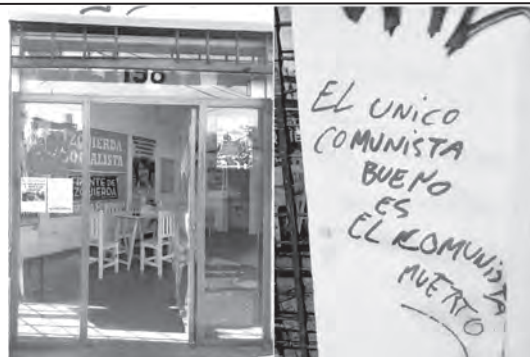 198
IZQUIERDA
SOCIALISTA
FRENTE DE
IZQUIERDA
EL UNICO
COMUNISTA
BUENO
ES
EL COMUNISTA
MUERTO